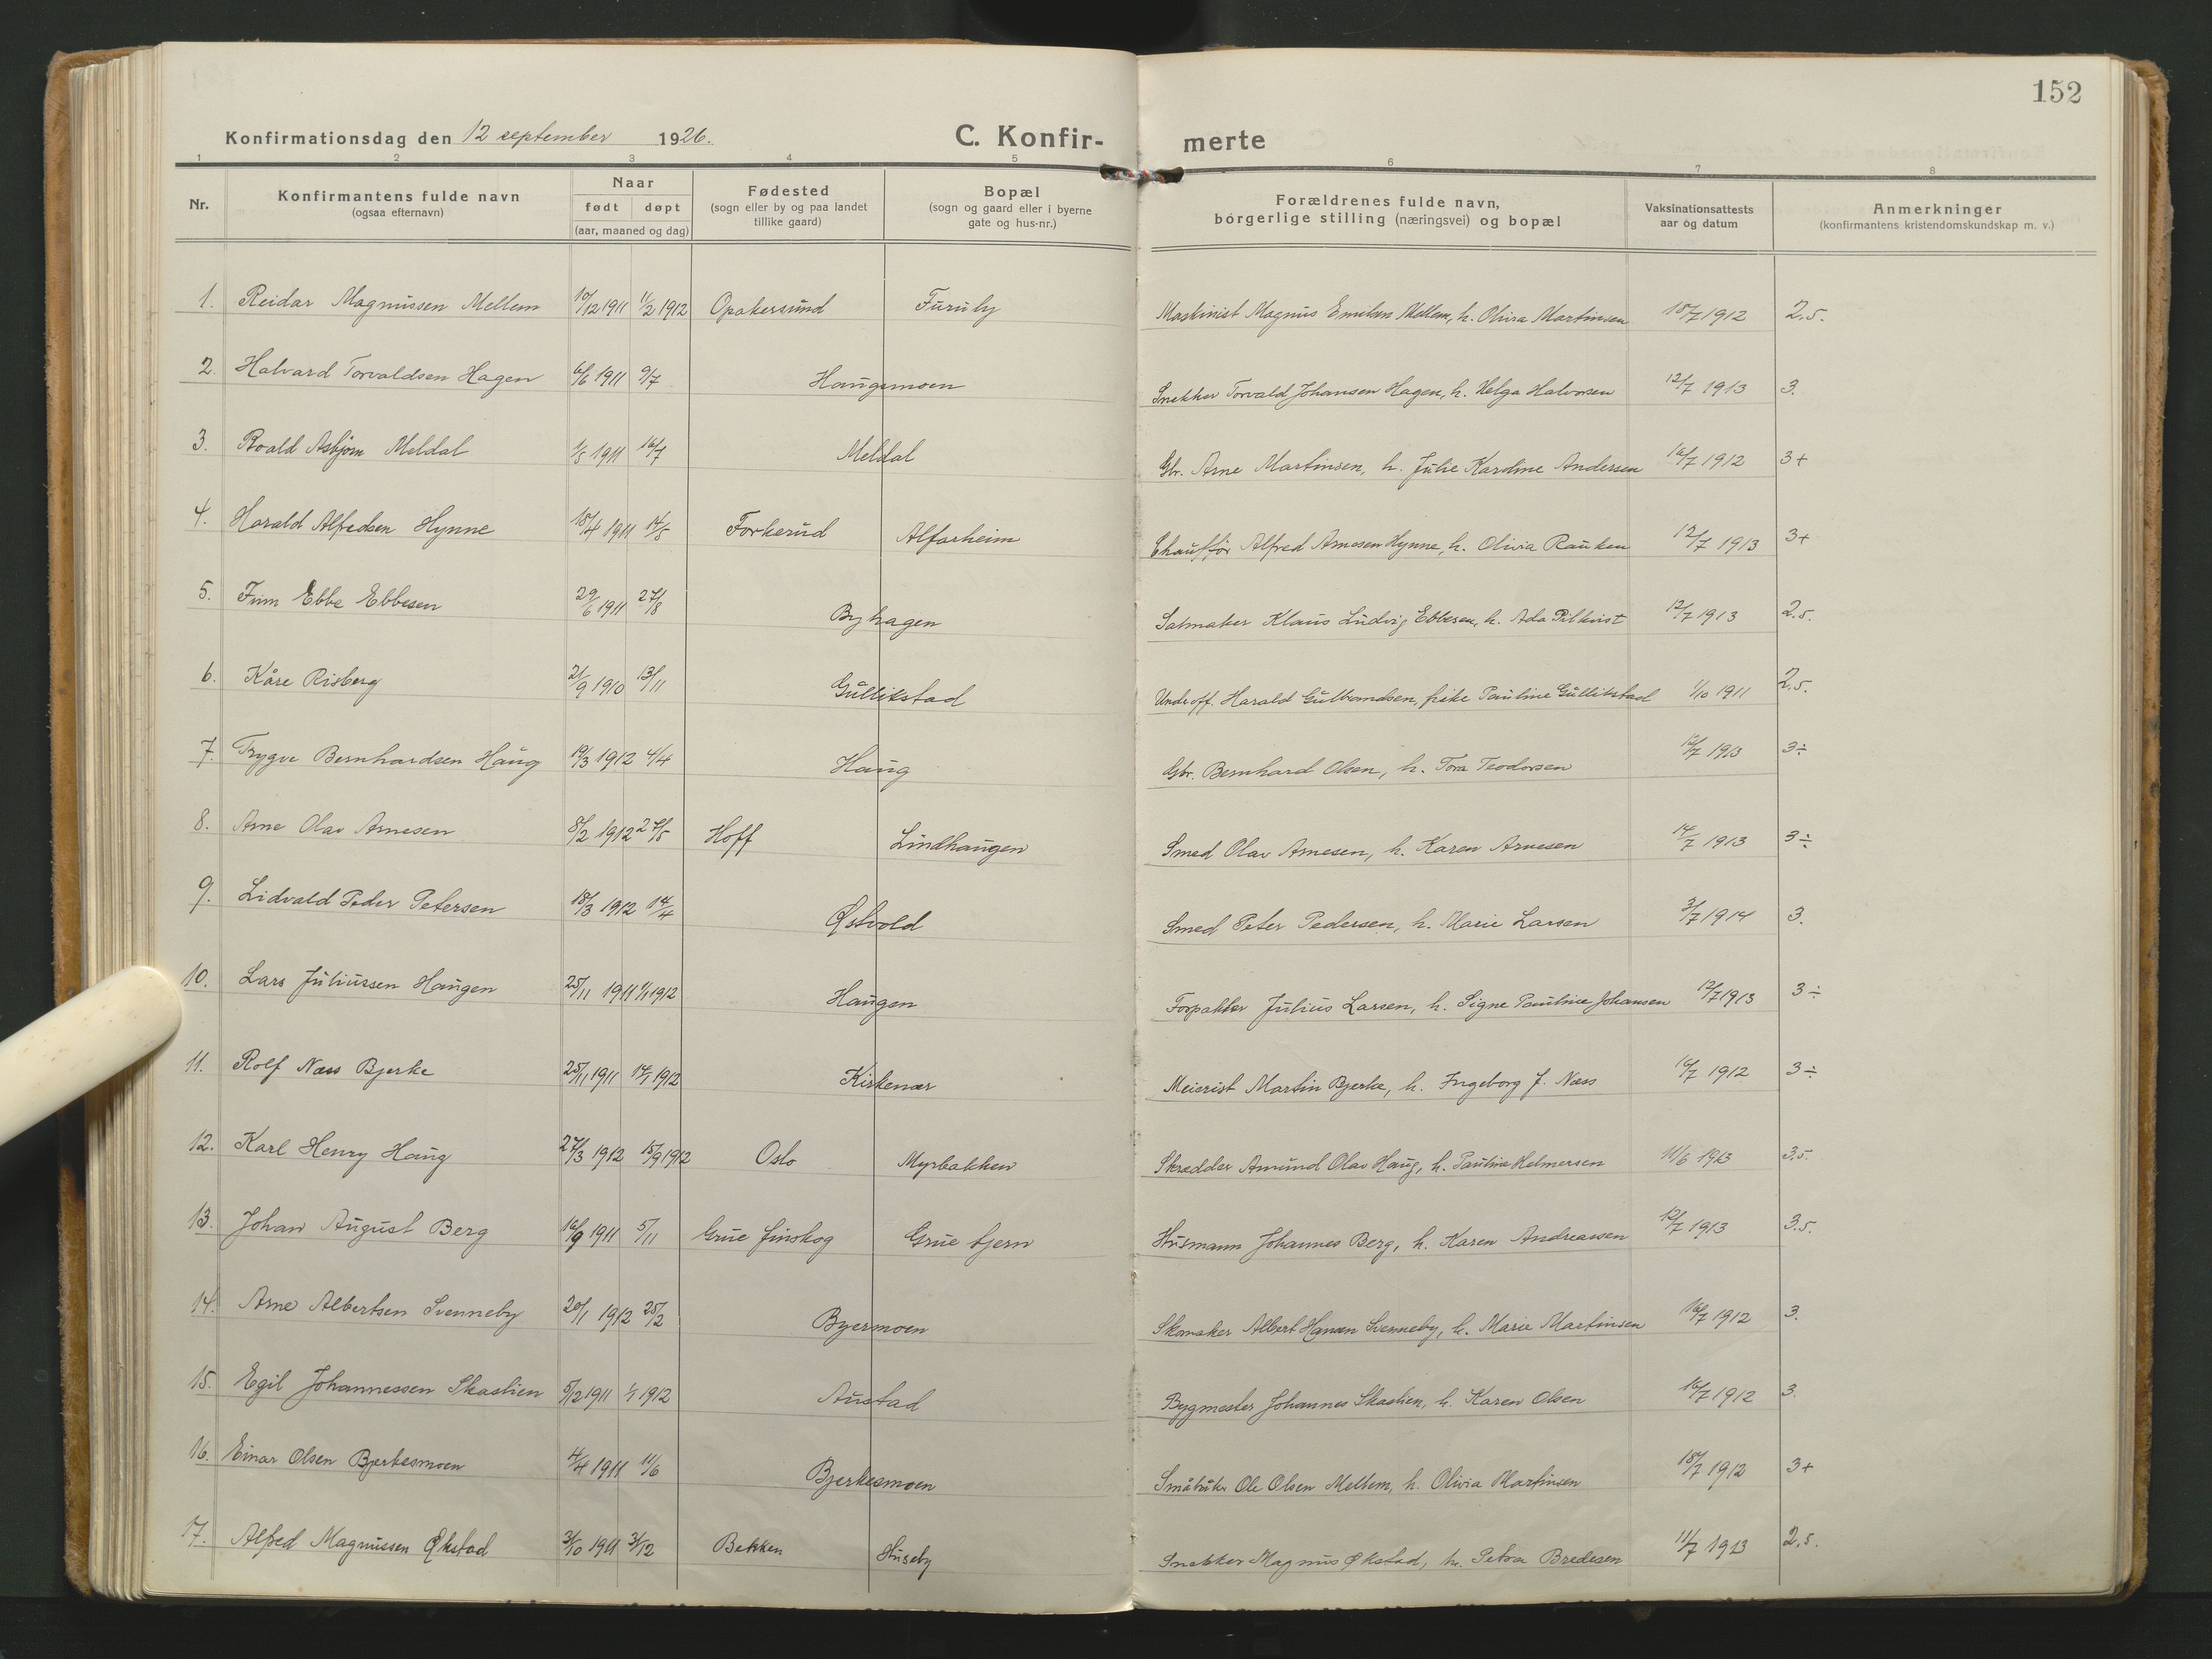 152
Konfirmationsdag den 12 september 1926.
C. Konfir- merte
1 2 3 4 5 6 7 8
Nr. Konfirmantens fulde navn (ogsaa efternavn) Naar født døpt (aar, maaned og dag) Fødested (sogn eller by og paa landet tillike gaard) Bopæl (sogn og gaard eller i byerne gate og hus-nr.) Forældrenes fulde navn, borgerlige stilling (næringsvei) og bopæl Vaksinationsattests aar og datum Anmerkninger (konfirmantens kristendomskundskap m. v.)
1. Reidar Magnussen Mellem 10/12 1911 11/2 1912 Opakersund Furuly Maskinist Magnus Emilsen Mellem, h. Olivia Martinsen 18/7 1912 2,5.
2. Halvard Torvaldsen Hagen 6/6 1911 9/7 Haugsmoen Snekker Torvald Johansen Hagen, h. Helga Halvorsen 12/7 1913 3.
3. Roald Asbjørn Meldal 1/5 1911 16/7 Meldal Gbr. Arne Martinsen, h. Julie Karoline Andersen 16/7 1912 3+
4. Harald Alfredsen Hynne 18/4 1911 14/5 Forkerud Alfarheim Chauffør Alfred Arnesen Hynne, h. Olivia Rauken 12/7 1913 3+
5. Finn Ebbe Ebbesen 29/6 1911 27/8 Byhagen Salmaker Klaus Ludvig Ebbesen, h. Ada Pilkvist 12/7 1913 2.5.
6. Kåre Risberg 21/9 1910 13/11 Gullikstad Underoff. Harald Gulbrandsen, pike Pauline Gullikstad 1/10 1911 2.5.
7. Trygve Bernhardsen Haug 19/3 1912 4/4 Haug Gbr. Bernhard Olsen, h. Tora Teodorsen 12/7 1913 3÷
8. Arne Olav Arnesen 8/2 1912 27/5 Hoff Lindhaugen Smed Olav Arnesen, h. Karen Arnesen 14/7 1913 3÷
9. Lidvald Peder Petersen 18/3 1912 14/4 Østvold Smed Peter Pedersen, h. Marie Larsen 3/7 1914 3.
10. Lars Juliussen Haugen 25/11 1911 1/1 1912 Haugen Forpakter Julius Larsen, h. Signe Pauline Johansen 12/7 1913 3÷
11. Rolf Næss Bjerke 25/11 1911 14/1 1912 Kirkenær Meierist Martin Bjerke, h. Ingeborg J. Næss 16/7 1912 3÷
12. Karl Henry Haug 27/3 1912 15/9 1912 Oslo Myrbakken Skrædder Amund Olav Haug, h. Pauline Helmersen 11/6 1913 3.5.
13. Johan August Berg 16/9 1911 5/11 Grue finskog Grue tjern Husmann Johannes Berg, h. Karen Andreassen 12/7 1913 3.5.
14. Arne Albertsen Svenneby 20/1 1912 25/2 Byermoen Skomaker Albert Hansen Svenneby, h. Marie Martinsen 16/7 1912 3.
15. Egil Johannessen Skaslien 5/12 1911 1/1 1912 Austad Bygmester Johannes Skaslien, h. Karen Olsen 16/7 1912 3.
16. Einar Olsen Bjerkesmoen 4/4 1911 11/6 Bjerkesmoen Småbruker Ole Olsen Mellem, h. Olivia Martinsen 18/7 1912 3+
17. Alfred Magnussen Økstad 3/10 1911 3/12 Bekken Huseby Snekker Magnus Økstad, h. Petra Bredesen 11/7 1913 2,5.